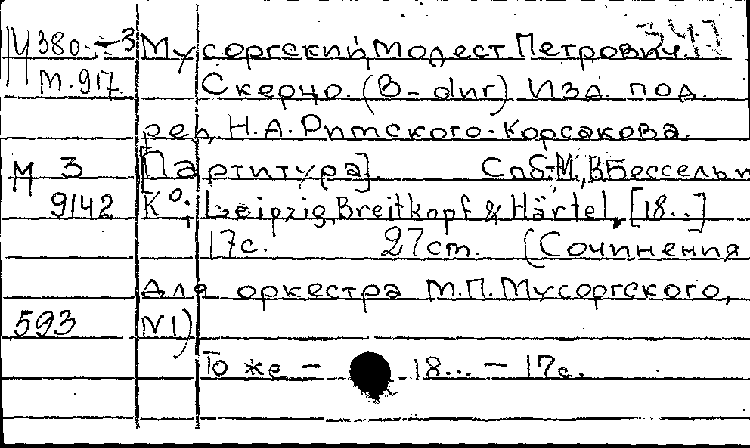 347
Ц380-3 Мусоргский, Модест Петрович.
М.917 Скерцо. (B-dur) Изд. под.
ред. Н.А.Римского-Корсакова.
М 3 [Партитура]. Спб.-М., В.Бессель и
9142 К°.; Leipzig, Breitkopf & Härtel, [18..]
17с. 27cm. (Сочинения
для оркестра М.П.Мусоргского,
593 N1)
То же - 18... - 17с.